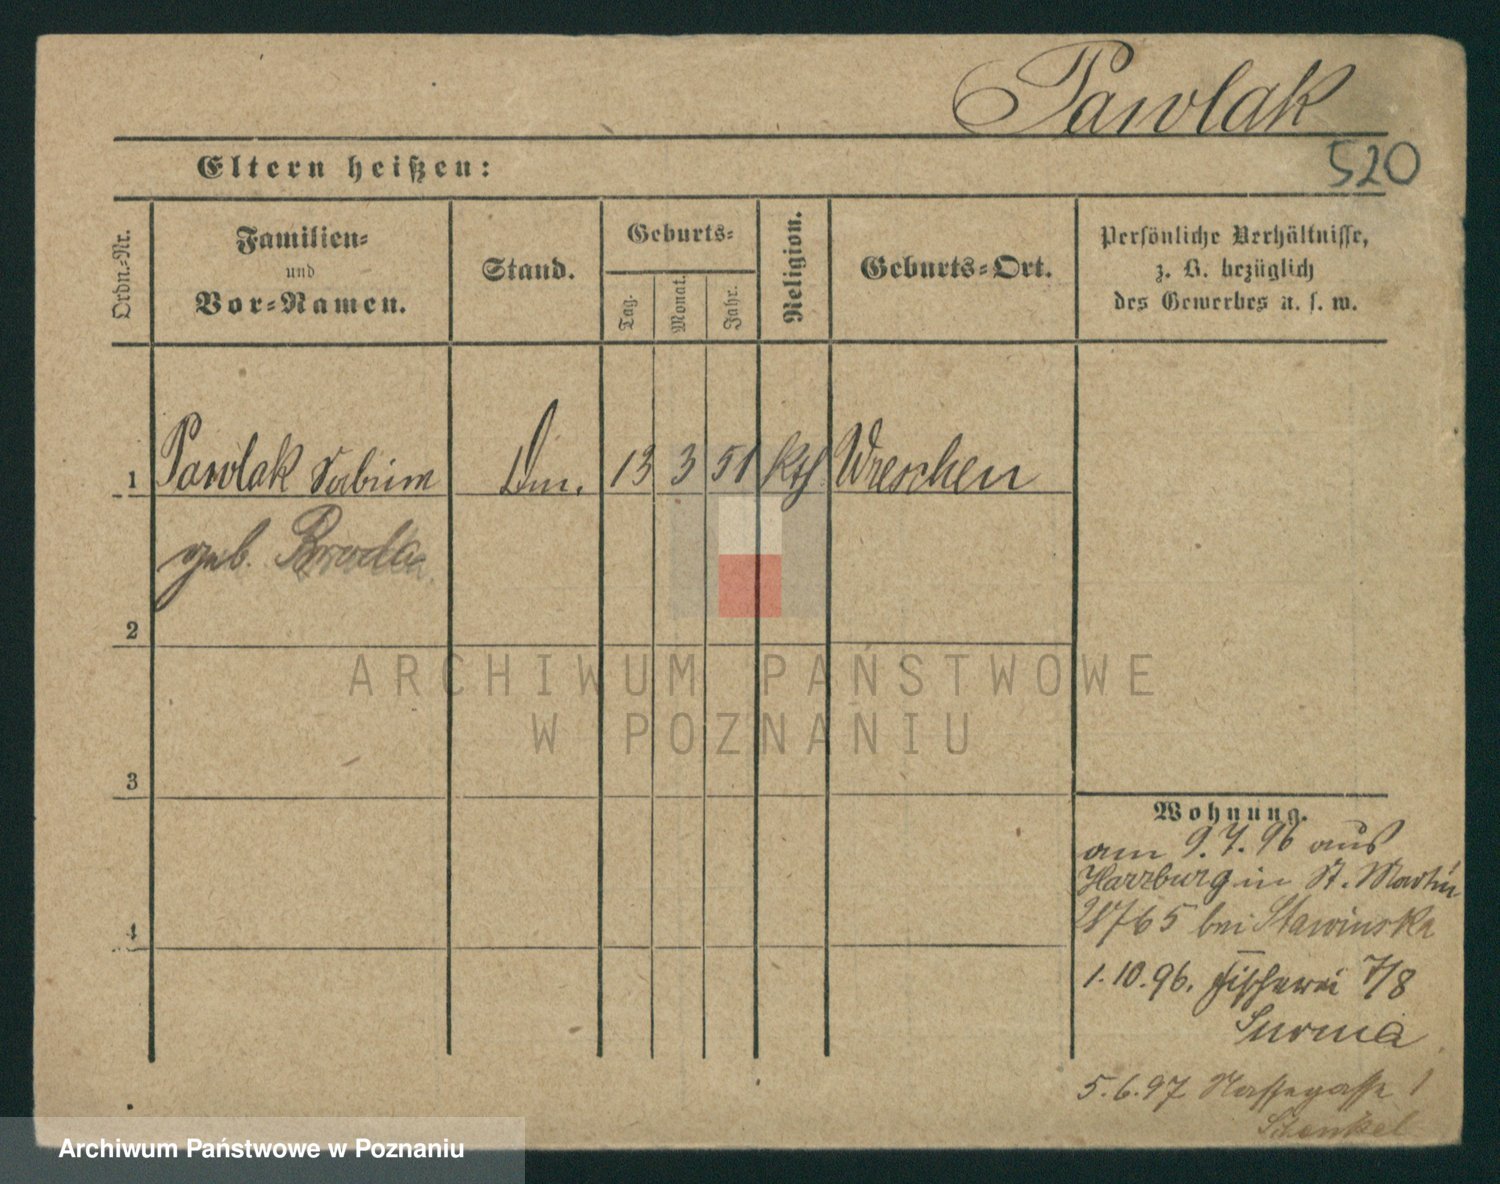 Pawlak
520
Eltern heißen:
Ordn.-Nr.
Familien-
und
Vor-Namen.
Stand.
Geburts-
Tag.
Monat.
Jahr.
Religion.
Geburts-Ort.
Persönliche Verhältnisse,
z. B. bezüglich
des Gewerbes u. s. w.
1 Pawlak 13 3 51 kth Wreschen
geb. Broda
2
3
4
Wohnung.
am 9.7.96 aus
Harzburg in St. Martin
bei Stawinska
1.10.96. Fischerei 7/8
Surma
5.6.97 Nassegasse 1
Stenkel
ARCHIWUM PAŃSTWOWE
W POZNANIU
Archiwum Państwowe w Poznaniu